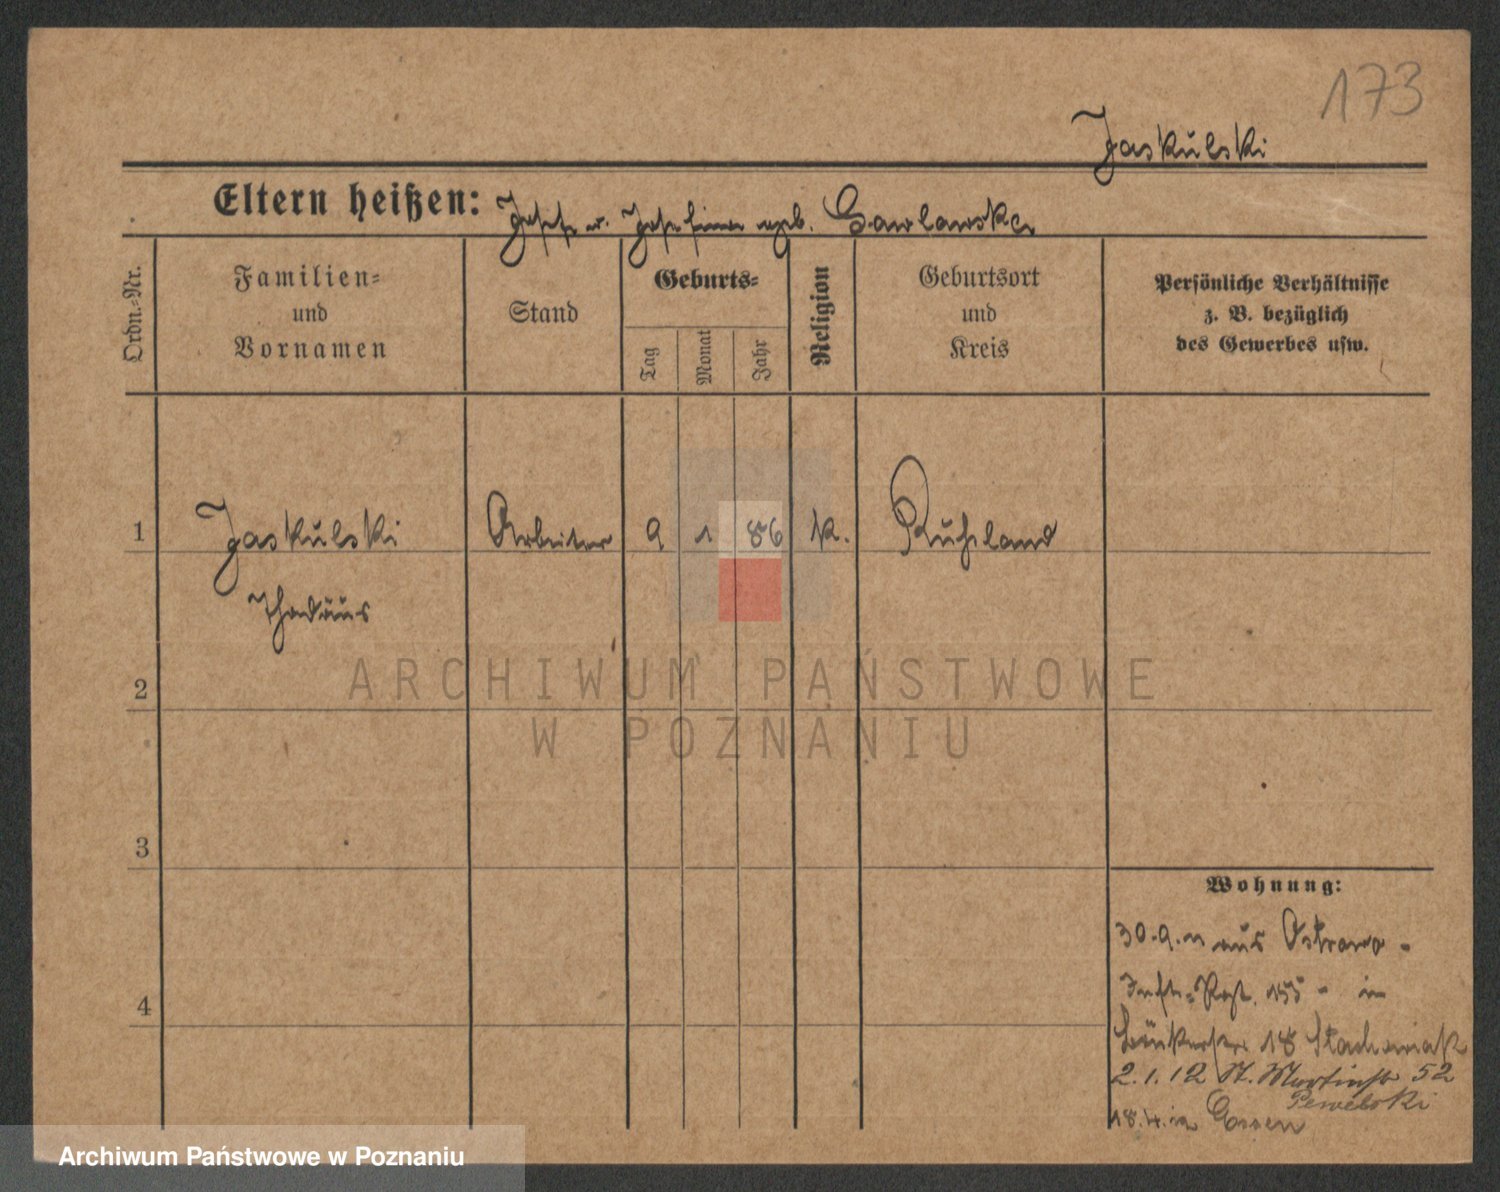 173
Jaskulski
Eltern heißen: Josef u. Josefina geb.
Ordn.=Nr.
Familien=
und
Vornamen
Stand
Geburts=
Tag
Monat
Jahr
Religion
Geburtsort
und
Kreis
Persönliche Verhältnisse
z. B. bezüglich
des Gewerbes usw.
1 Jaskulski Arbeiter 9 1 86 k. Ruhland
Thadäus
2
ARCHIWUM PAŃSTWOWE
W POZNANIU
3
Wohnung:
30.9.11 aus Ostrowo -
Inft.=Rgt. 155 - in
4
18 Stachowiak
2.1.12 St. Martinstr 52
Pewelski
18.4. in Essen
Archiwum Państwowe w Poznaniu